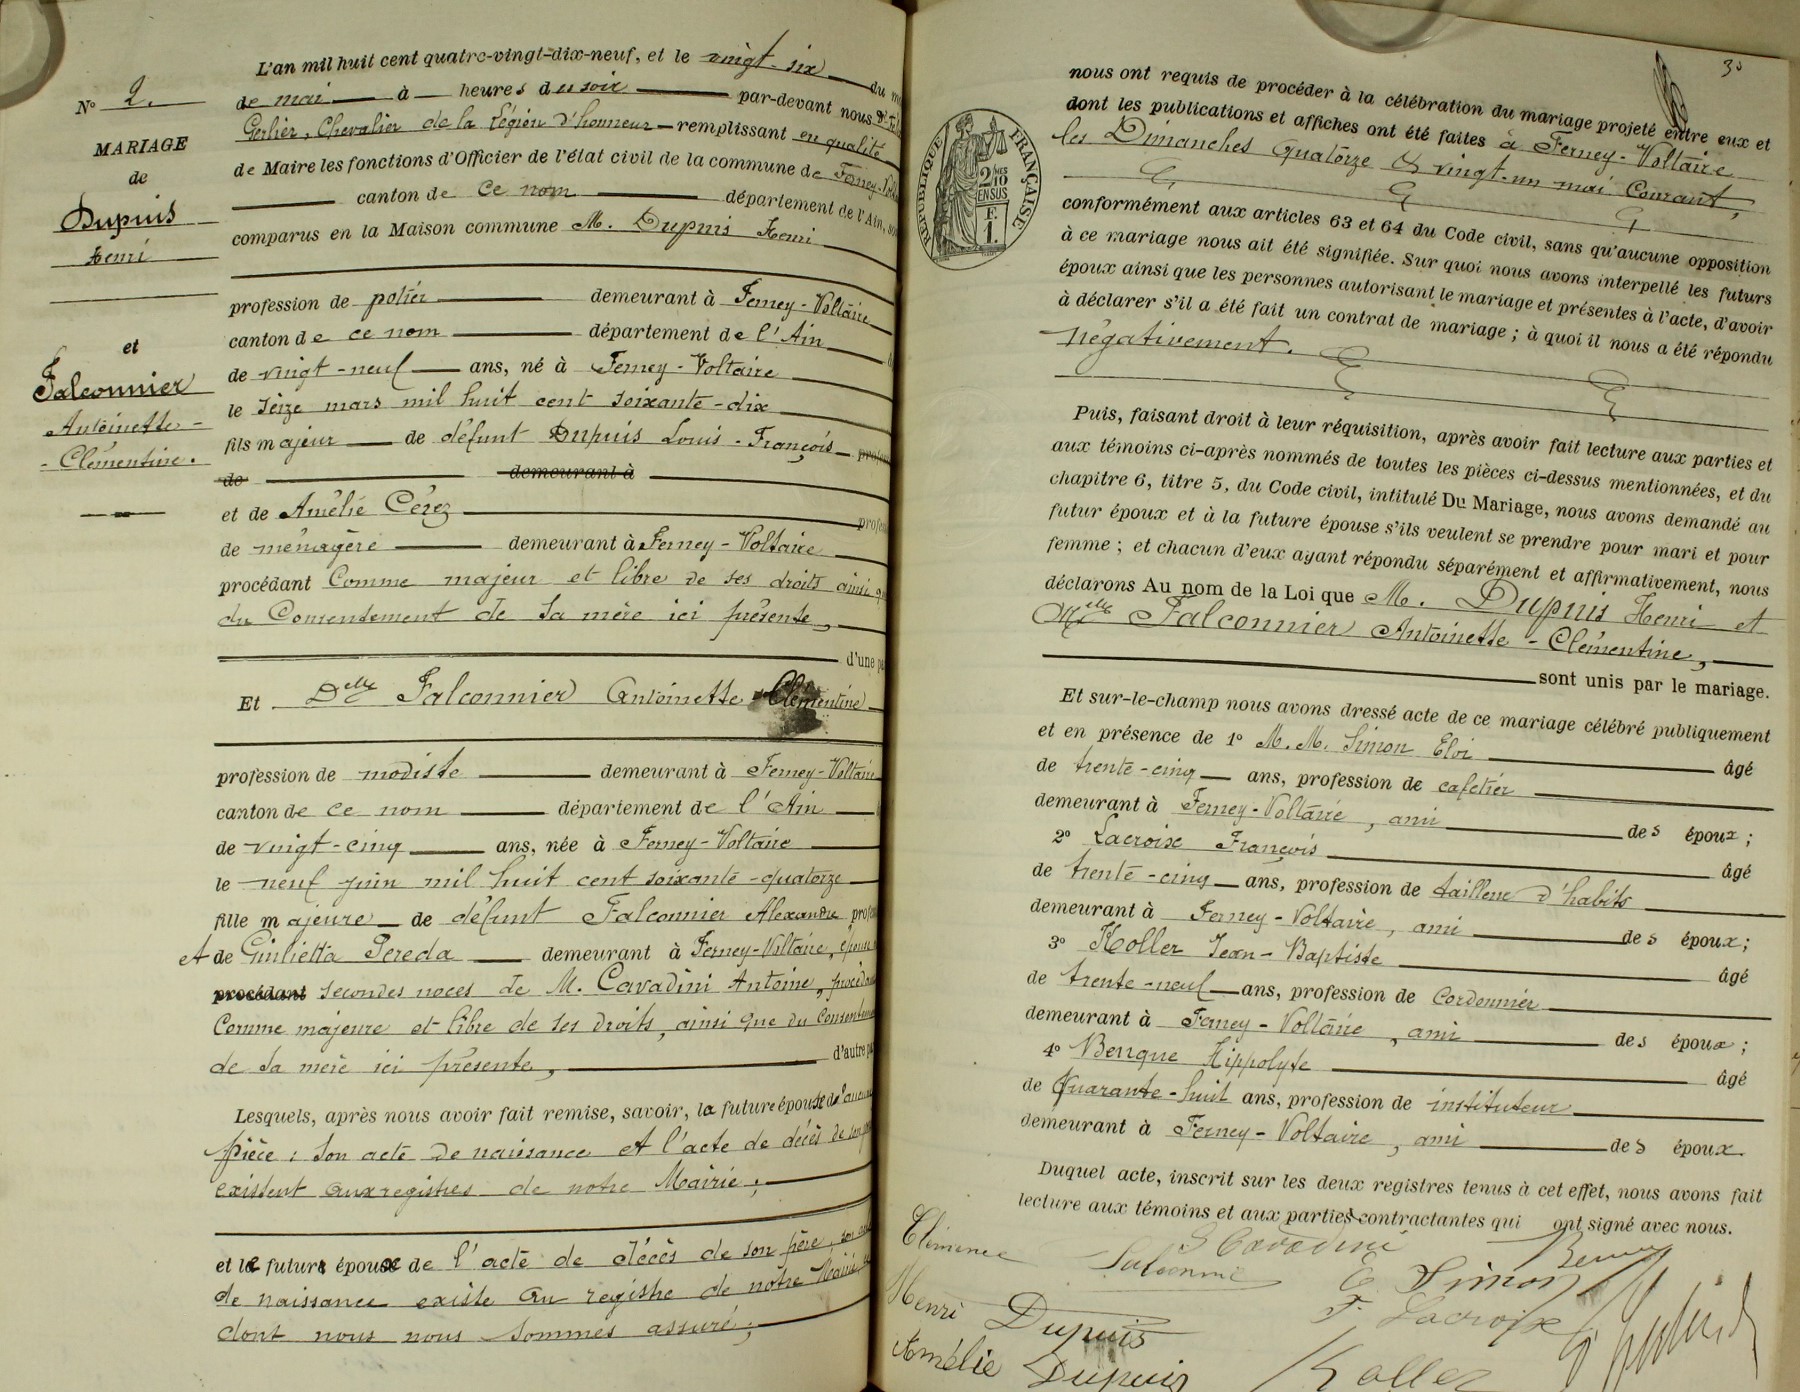 N° 2.
MARIAGE
de
Dupuis
Henri
et
Falconnier
Antoinette -
- Clémentine.
L'an mil huit cent quatre-vingt-dix-neuf, et le vingt-six du
de mai à heures du soir par-devant nous
Gerlier, Chevalier de la Légion d'honneur remplissant en qualité
de Maire les fonctions d'Officier de l'état civil de la commune de Ferney-
canton de ce nom département de l'Ain,
comparus en la Maison commune M. Dupuis Henri
profession de potier demeurant à Ferney-Voltaire
canton de ce nom département de l'Ain
de vingt-neuf ans, né à Ferney-Voltaire
le seize mars mil huit cent soixante-dix
fils majeur de défunt Dupuis Louis-François
de demeurant à
et de Amélie Cérez
de ménagère demeurant à Ferney-Voltaire
procédant Comme majeur et libre de ses droits ainsi
du Consentement de sa mère ici présente,
d'une
Et Delle Falconnier Antoinette Clémentine
profession de modiste demeurant à Ferney-Voltaire
canton de ce nom département de l'Ain
de vingt-cinq ans, née à Ferney-Voltaire
le neuf juin mil huit cent soixante-quatorze
fille majeure de défunt Falconnier Alexandre
et de Giulietta Pereda demeurant à Ferney-Voltaire,
procédant secondes noces de M. Cavadini Antoine,
Comme majeure et libre de ses droits, ainsi que du
de sa mère ici présente, d'autre
Lesquels, après nous avoir fait remise, savoir, la future épouse
pièce : son acte de naissance et l'acte de décès de son
existent aux registres de notre Mairie;
et le futur époux de l'acte de décès de son père, son
de naissance existe au registre de notre Mairie
dont nous nous sommes assuré;
nous ont requis de procéder à la célébration du mariage projeté entre eux et
dont les publications et affiches ont été faites à Ferney-Voltaire
les Dimanches quatorze & vingt-un mai Courant,
conformément aux articles 63 et 64 du Code civil, sans qu'aucune opposition
à ce mariage nous ait été signifiée. Sur quoi nous avons interpellé les futurs
époux ainsi que les personnes autorisant le mariage et présentes à l'acte, d'avoir
à déclarer s'il a été fait un contrat de mariage ; à quoi il nous a été répondu
négativement.
Puis, faisant droit à leur réquisition, après avoir fait lecture aux parties et
aux témoins ci-après nommés de toutes les pièces ci-dessus mentionnées, et du
chapitre 6, titre 5, du Code civil, intitulé Du Mariage, nous avons demandé au
futur époux et à la future épouse s'ils veulent se prendre pour mari et pour
femme ; et chacun d'eux ayant répondu séparément et affirmativement, nous
déclarons Au nom de la Loi que M. Dupuis Henri et
Melle Falconnier Antoinette-Clémentine,
sont unis par le mariage.
Et sur-le-champ nous avons dressé acte de ce mariage célébré publiquement
et en présence de 1° M.M. Simon Eloi âgé
de trente-cinq ans, profession de cafetier
demeurant à Ferney-Voltaire, ami des époux ;
2° Lacroix François âgé
de trente-cinq ans, profession de tailleur d'habits
demeurant à Ferney-Voltaire, ami des époux ;
3° Koller Jean-Baptiste âgé
de trente-neuf ans, profession de Cordonnier
demeurant à Ferney-Voltaire, ami des époux ;
4° Benque Hippolyte âgé
de Quarante-huit ans, profession de instituteur
demeurant à Ferney-Voltaire, ami des époux.
Duquel acte, inscrit sur les deux registres tenus à cet effet, nous avons fait
lecture aux témoins et aux parties contractantes qui ont signé avec nous.
RÉPUBLIQUE FRANÇAISE
2/10 EN SUS
F.
1.
Clémence
Cavadini
E Simon
Henri Dupuis
F. Lacroix
Amélie Dupuis
Koller